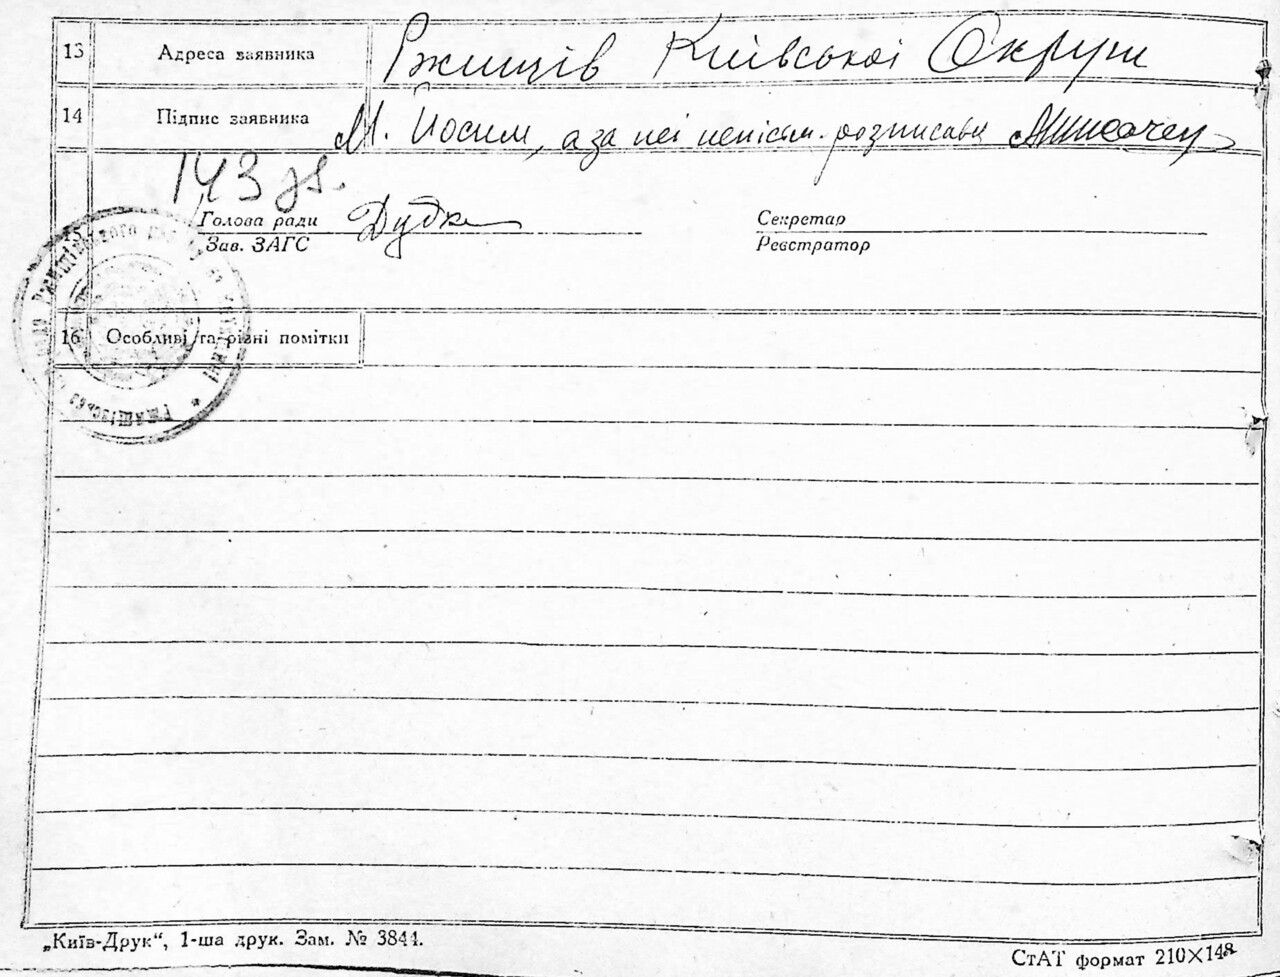 13 Адреса заявника Ржищів Київської Округи
14 Підпис заявника М. Йосим, а за неї неписьм. розписавсь
143
Голова ради Дудка Секретар
Зав. ЗАГС Реєстратор
15
16 Особливі та різні помітки
„Київ-Друк“, 1-ша друк. Зам. № 3844.
СтАТ формат 210×148